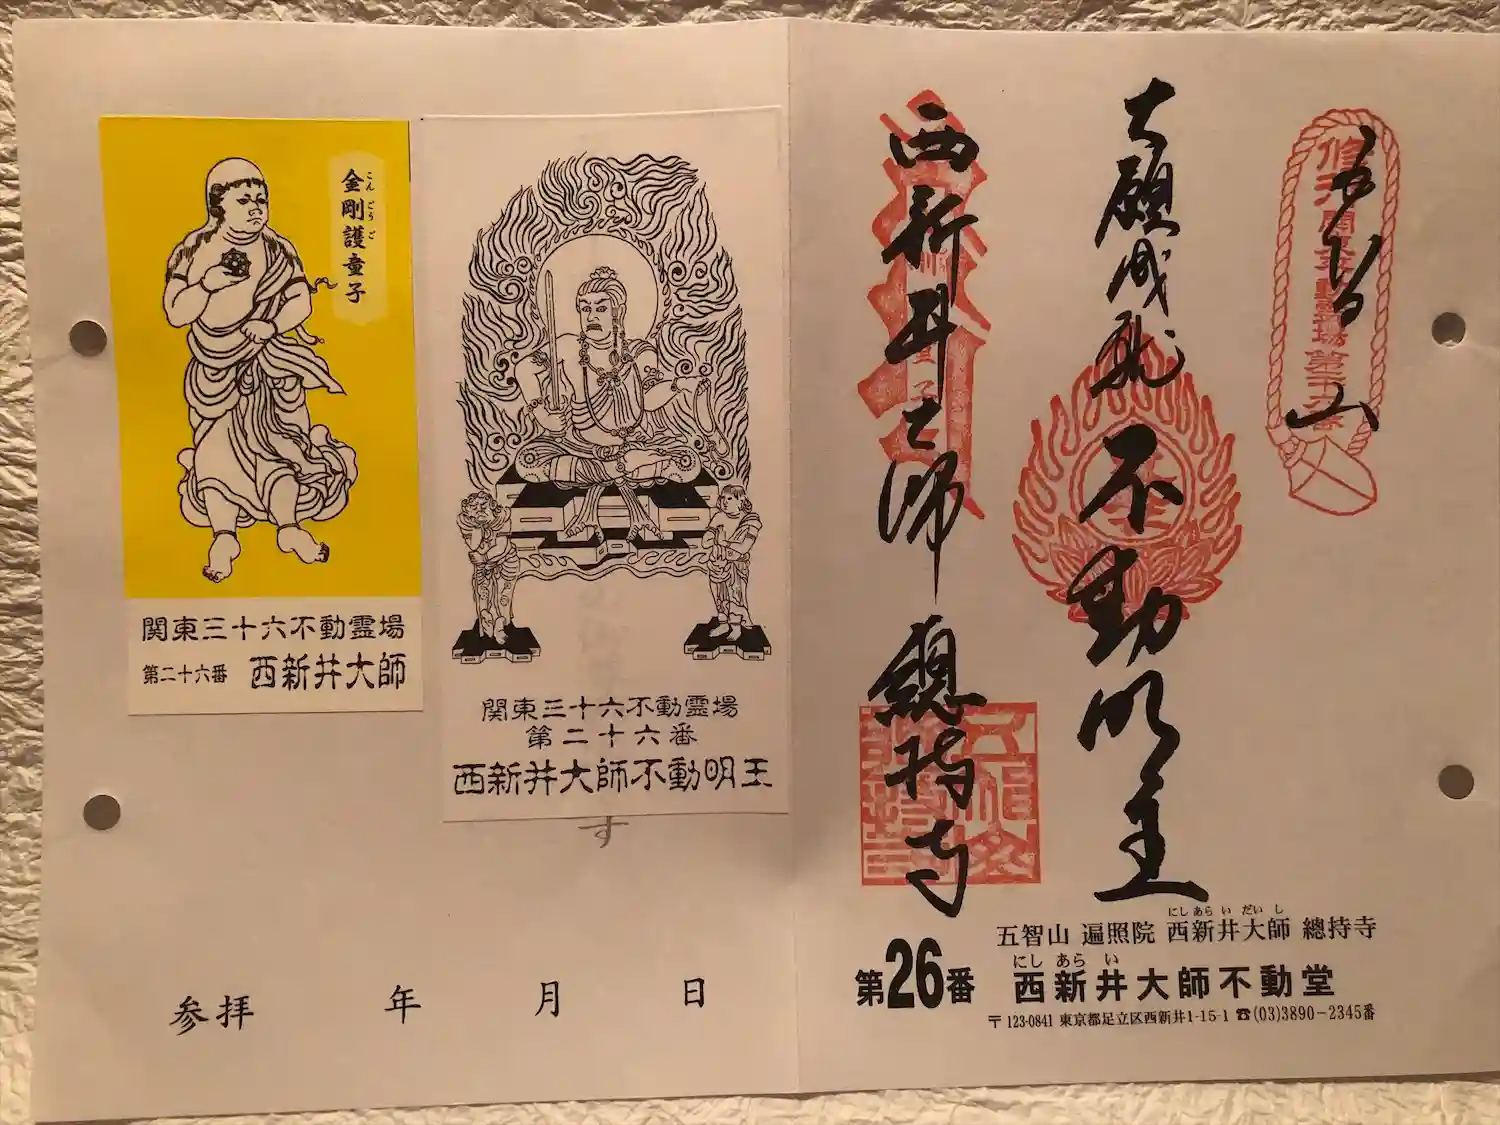 金剛護童子
こんごうご
関東三十六不動霊場
第二十六番 西新井大師
関東三十六不動霊場
第二十六番
西新井大師不動明王
す
参拝 年 月 日
五智山
大願成就 不動明王
西新井大師 總持寺
にしあらいだいし
五智山 遍照院 西新井大師 總持寺
にし あらい
第26番 西新井大師不動堂
〒123-0841 東京都足立区西新井1-15-1 ☎(03)3890-2345番